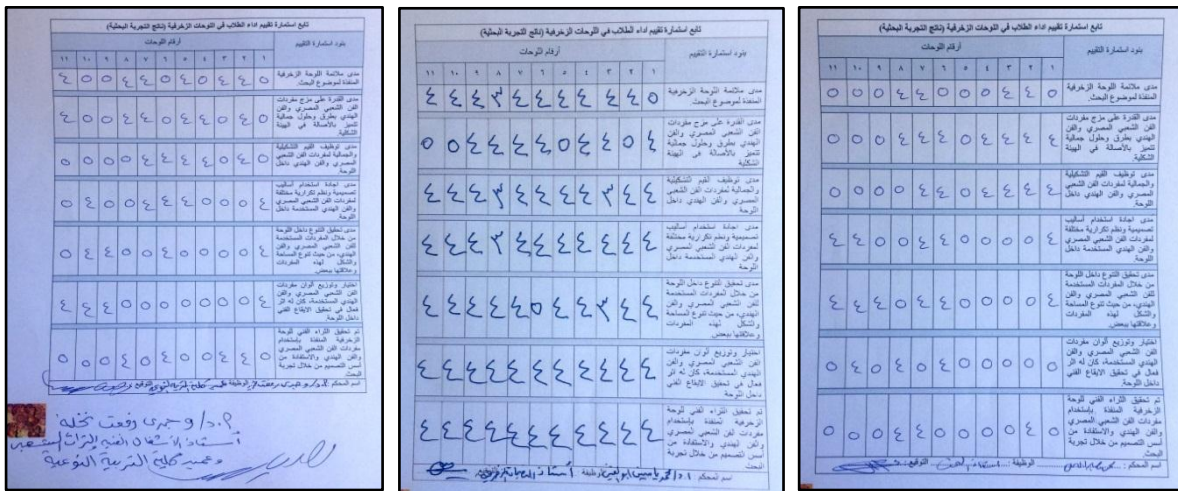 تابع استمارة تقييم اداء الطلاب في اللوحات الزخرفية (ناتج التجربة البحثية)
بنود استمارة التقييم أرقام اللوحات
١ ٢ ٣ ٤ ٥ ٦ ٧ ٨ ٩ ١٠ ١١
مدى ملائمة اللوحة الزخرفية
المنفذة لموضوع البحث.
٥ ٤ ٤ ٥ ٤ ٥ ٤ ٤ ٥ ٥ ٤
مدى القدرة على مزج مفردات
الفن الشعبي المصري والفن
الهندي بطرق وحلول جمالية
تتميز بالأصالة في الهيئة
الشكلية.
٥ ٤ ٥ ٤ ٤ ٥ ٤ ٤ ٥ ٥ ٤
مدى توظيف القيم التشكيلية
والجمالية لمفردات الفن الشعبي
المصري والفن الهندي داخل
اللوحة.
٥ ٤ ٤ ٥ ٤ ٤ ٤ ٥ ٥ ٥ ٥
مدى اجادة استخدام أساليب
تصميمية ونظم تكرارية مختلفة
لمفردات الفن الشعبي المصري
والفن الهندي المستخدمة داخل
اللوحة
٤ ٥ ٥ ٥ ٤ ٤ ٤ ٥ ٥ ٤ ٥
مدى تحقيق التنوع داخل اللوحة
من خلال المفردات المستخدمة
للفن الشعبي المصري والفن
الهندي، من حيث تنوع المساحة
والشكل لهذه المفردات
وعلاقتها ببعض.
٤ ٥ ٥ ٥ ٥ ٤ ٥ ٥ ٤ ٤ ٥
اختيار وتوزيع ألوان مفردات
الفن الشعبي المصري والفن
الهندي المستخدمة، كان له اثر
فعال في تحقيق الايقاع الفني
داخل اللوحة.
٤ ٥ ٥ ٥ ٥ ٥ ٥ ٥ ٤ ٤ ٤
تم تحقيق الثراء الفني للوحة
الزخرفية المنفذة بإستخدام
مفردات الفن الشعبي المصري
والفن الهندي والاستفادة من
أسس التصميم من خلال تجربة
البحث
٥ ٤ ٤ ٥ ٥ ٤ ٥ ٤ ٥ ٥ ٥
اسم المحكم : الوظيفة عميد كلية التربية النوعية التوقيع
أ.د/ وجدى رفعت نخلة
أستاذ الأشغال الفنية والتراث الشعبى
وعميد كلية التربية النوعية
تابع استمارة تقييم اداء الطلاب في اللوحات الزخرفية (ناتج التجربة البحثية)
بنود استمارة التقييم أرقام اللوحات
١ ٢ ٣ ٤ ٥ ٦ ٧ ٨ ٩ ١٠ ١١
مدى ملائمة اللوحة الزخرفية
المنفذة لموضوع البحث.
٥ ٤ ٤ ٤ ٤ ٤ ٤ ٣ ٤ ٤ ٤
مدى القدرة على مزج مفردات
الفن الشعبي المصري والفن
الهندي بطرق وحلول جمالية
تتميز بالأصالة في الهيئة
الشكلية
٤ ٥ ٤ ٤ ٥ ٤ ٤ ٤ ٤ ٥ ٥
مدى توظيف القيم التشكيلية
والجمالية لمفردات الفن الشعبي
المصري والفن الهندي داخل
اللوحة
٤ ٤ ٣ ٤ ٤ ٤ ٤ ٣ ٤ ٤ ٤
مدى اجادة استخدام أساليب
تصميمية ونظم تكرارية مختلفة
لمفردات الفن الشعبي المصري
والفن الهندي المستخدمة داخل
اللوحة
٤ ٤ ٤ ٤ ٤ ٤ ٤ ٣ ٤ ٤ ٤
مدى تحقيق التنوع داخل اللوحة
من خلال المفردات المستخدمة
للفن الشعبي المصري والفن
الهندي، من حيث تنوع المساحة
والشكل لهذه المفردات
وعلاقتها ببعض.
٤ ٤ ٣ ٤ ٤ ٥ ٤ ٤ ٤ ٤ ٤
اختيار وتوزيع ألوان مفردات
الفن الشعبي المصري والفن
الهندي المستخدمة، كان له اثر
فعال في تحقيق الايقاع الفني
داخل اللوحة
٤ ٤ ٤ ٤ ٤ ٤ ٤ ٤ ٤ ٤ ٤
تم تحقيق الثراء الفني للوحة
الزخرفية المنفذة بإستخدام
مفردات الفن الشعبي المصري
والفن الهندي والاستفادة من
أسس التصميم من خلال تجربة
البحث
٤ ٤ ٤ ٤ ٤ ٤ ٤ ٤ ٤ ٤ ٤
اسم المحكم : الوظيفة أستاذ
تابع استمارة تقييم اداء الطلاب في اللوحات الزخرفية (ناتج التجربة البحثية)
بنود استمارة التقييم أرقام اللوحات
١ ٢ ٣ ٤ ٥ ٦ ٧ ٨ ٩ ١٠ ١١
مدى ملائمة اللوحة الزخرفية
المنفذة لموضوع البحث.
٥ ٤ ٤ ٥ ٥ ٥ ٤ ٤ ٥ ٥ ٥
مدى القدرة على مزج مفردات
الفن الشعبي المصري والفن
الهندي بطرق وحلول جمالية
تتميز بالأصالة في الهيئة
الشكلية.
٤ ٤ ٤ ٤ ٥ ٤ ٤ ٤ ٥ ٥ ٥
مدى توظيف القيم التشكيلية
والجمالية لمفردات الفن الشعبي
المصري والفن الهندي داخل
اللوحة.
٤ ٤ ٤ ٤ ٥ ٤ ٤ ٥ ٥ ٥ ٥
مدى اجادة استخدام أساليب
تصميمية ونظم تكرارية مختلفة
لمفردات الفن الشعبي المصري
والفن الهندي المستخدمة داخل
اللوحة
٤ ٥ ٥ ٥ ٥ ٤ ٤ ٥ ٥ ٤ ٤
مدى تحقيق التنوع داخل اللوحة
من خلال المفردات المستخدمة
للفن الشعبي المصري والفن
الهندي، من حيث تنوع المساحة
والشكل لهذه المفردات
وعلاقتها ببعض.
٤ ٥ ٥ ٥ ٥ ٤ ٤ ٥ ٤ ٤ ٤
اختيار وتوزيع ألوان مفردات
الفن الشعبي المصري والفن
الهندي المستخدمة، كان له اثر
فعال في تحقيق الايقاع الفني
داخل اللوحة.
٥ ٥ ٥ ٥ ٥ ٤ ٥ ٤ ٥ ٤ ٥
تم تحقيق الثراء الفني للوحة
الزخرفية المنفذة بإستخدام
مفردات الفن الشعبي المصري
والفن الهندي والاستفادة من
أسس التصميم من خلال تجربة
البحث
٥ ٤ ٥ ٥ ٥ ٥ ٤ ٤ ٥ ٥ ٥
اسم المحكم : الوظيفة : التوقيع :